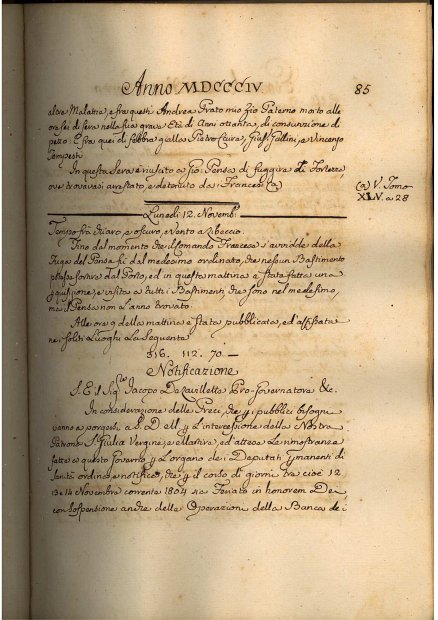 Anno MDCCCIV
85
altre Malattie, e fra questi Andrea Prato mio Zio Paterno morto alle
ore sei di sera nella sua grave Età di Anni ottanta, di consunzione di
petto. E fra quei di febbre gialla Pietro Giuss. Gallini, e Vincenzo
Tempesti
In questa Sera è riuscito a Gio. Pensa di fuggire di Fortezza,
ove trovavasi arrestato, e detenuto da i Francesi (a)
(a) V. Tomo
XLV. a 28
Lunedì 12. Novemb.
Tempo frà chiaro, e oscuro, e Vento a Libeccio.
Fino dal momento che il Comando Francese s'avvidde della
fuga del Pensa fù dal medesimo ordinato, che nessun Bastimento
potesse sortire dal Porto, ed in questa mattina è stata fatta una
perquisizione, e visita a tutti i Bastimenti, che sono nel medesimo,
ma il Pensa non l'anno trovato.
Alle ore 9 della mattina è stata pubblicata, ed affissata
nei soliti Luoghi La Seguente
316. 112. 70.—
Notificazione
S. E. il Sig. Jacopo De Lavillette Pro-Governatore &c.
In considerazione delle Preci, che pubblici bisogni
vanno a porgersi a S. D. M. per L'intercessione della Nostra
Patrona S. Giulia Vergine, e Martire, ed attese Le rimostranze
fatte a questo Governo per L'organo dei Deputati
Sanità ordina, e notifica, che per il corso di giorni tre cioè 12
13 e 14 Novembre corrente 1804 sia Feriato in honorem Dei
con sospensione anche delle Operazioni della Banca dei